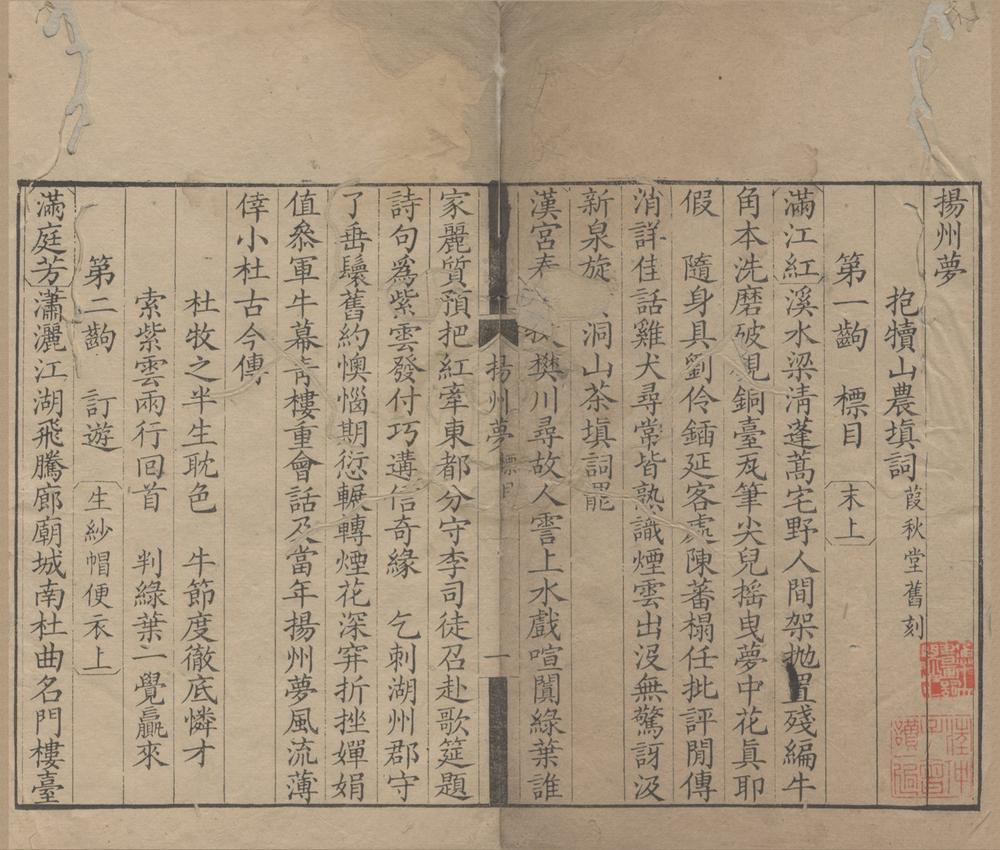 揚州夢
抱犢山農填詞 葭秋堂舊刻
第一齣 標目 末上
滿江紅 溪水梁清蓬蒿宅野人間架抛置殘編牛
角本洗磨破硯銅臺瓦筆尖兒搖曳夢中花真耶
假 隨身具劉伶鍤延客處陳蕃榻任批評閒傳
消詳佳話雞犬尋常皆熟識煙雲出沒無驚訝汲
新泉旋 洞山茶填詞罷
漢宮春 牧樊川尋故人霅上水戲喧闐綠葉誰
揚州夢 標目 一
家麗質預把紅牽東都分守李司徒召赴歌筵題
詩句爲紫雲發付巧遘信奇緣 乞刺湖州郡守
了垂鬟舊約懊惱期愆輾轉煙花深穽折挫嬋娟
值叅軍牛幕靑樓重會話及當年揚州夢風流薄
倖小杜古今傳
杜牧之半生耽色 牛節度徹底憐才
索紫雲兩行回首 判綠葉一覺贏來
第二齣 訂遊 生紗帽便衣上
滿庭芳 瀟灑江湖飛騰廊廟城南杜曲名門樓臺